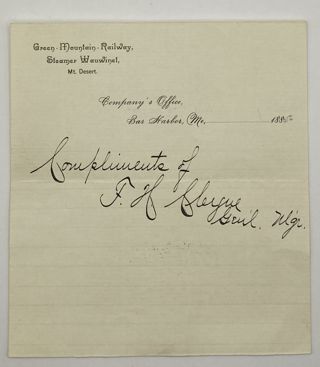 Green-Mountain-Railway,
Steamer Wauwinet,
Mt. Desert.
Company's Office,
Bar Harbor, Me. 188
Compliments of
F. H. Clergue
Gen'l. Mgr.